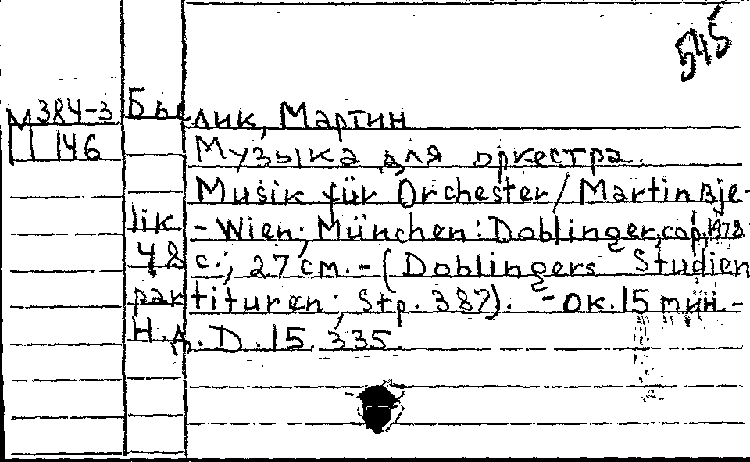 545
М 384-3 Бьелик, Мартин
П 146 Музыка для оркестра.
Musik für Orchester / Martin Bje-
lik. - Wien; München: Doblinger, cop. 1978
48 с.; 27 см. - (Doblingers Studien
partituren; Stp. 387). - ок. 15 мин. -
Н.д. D. 15. 335.